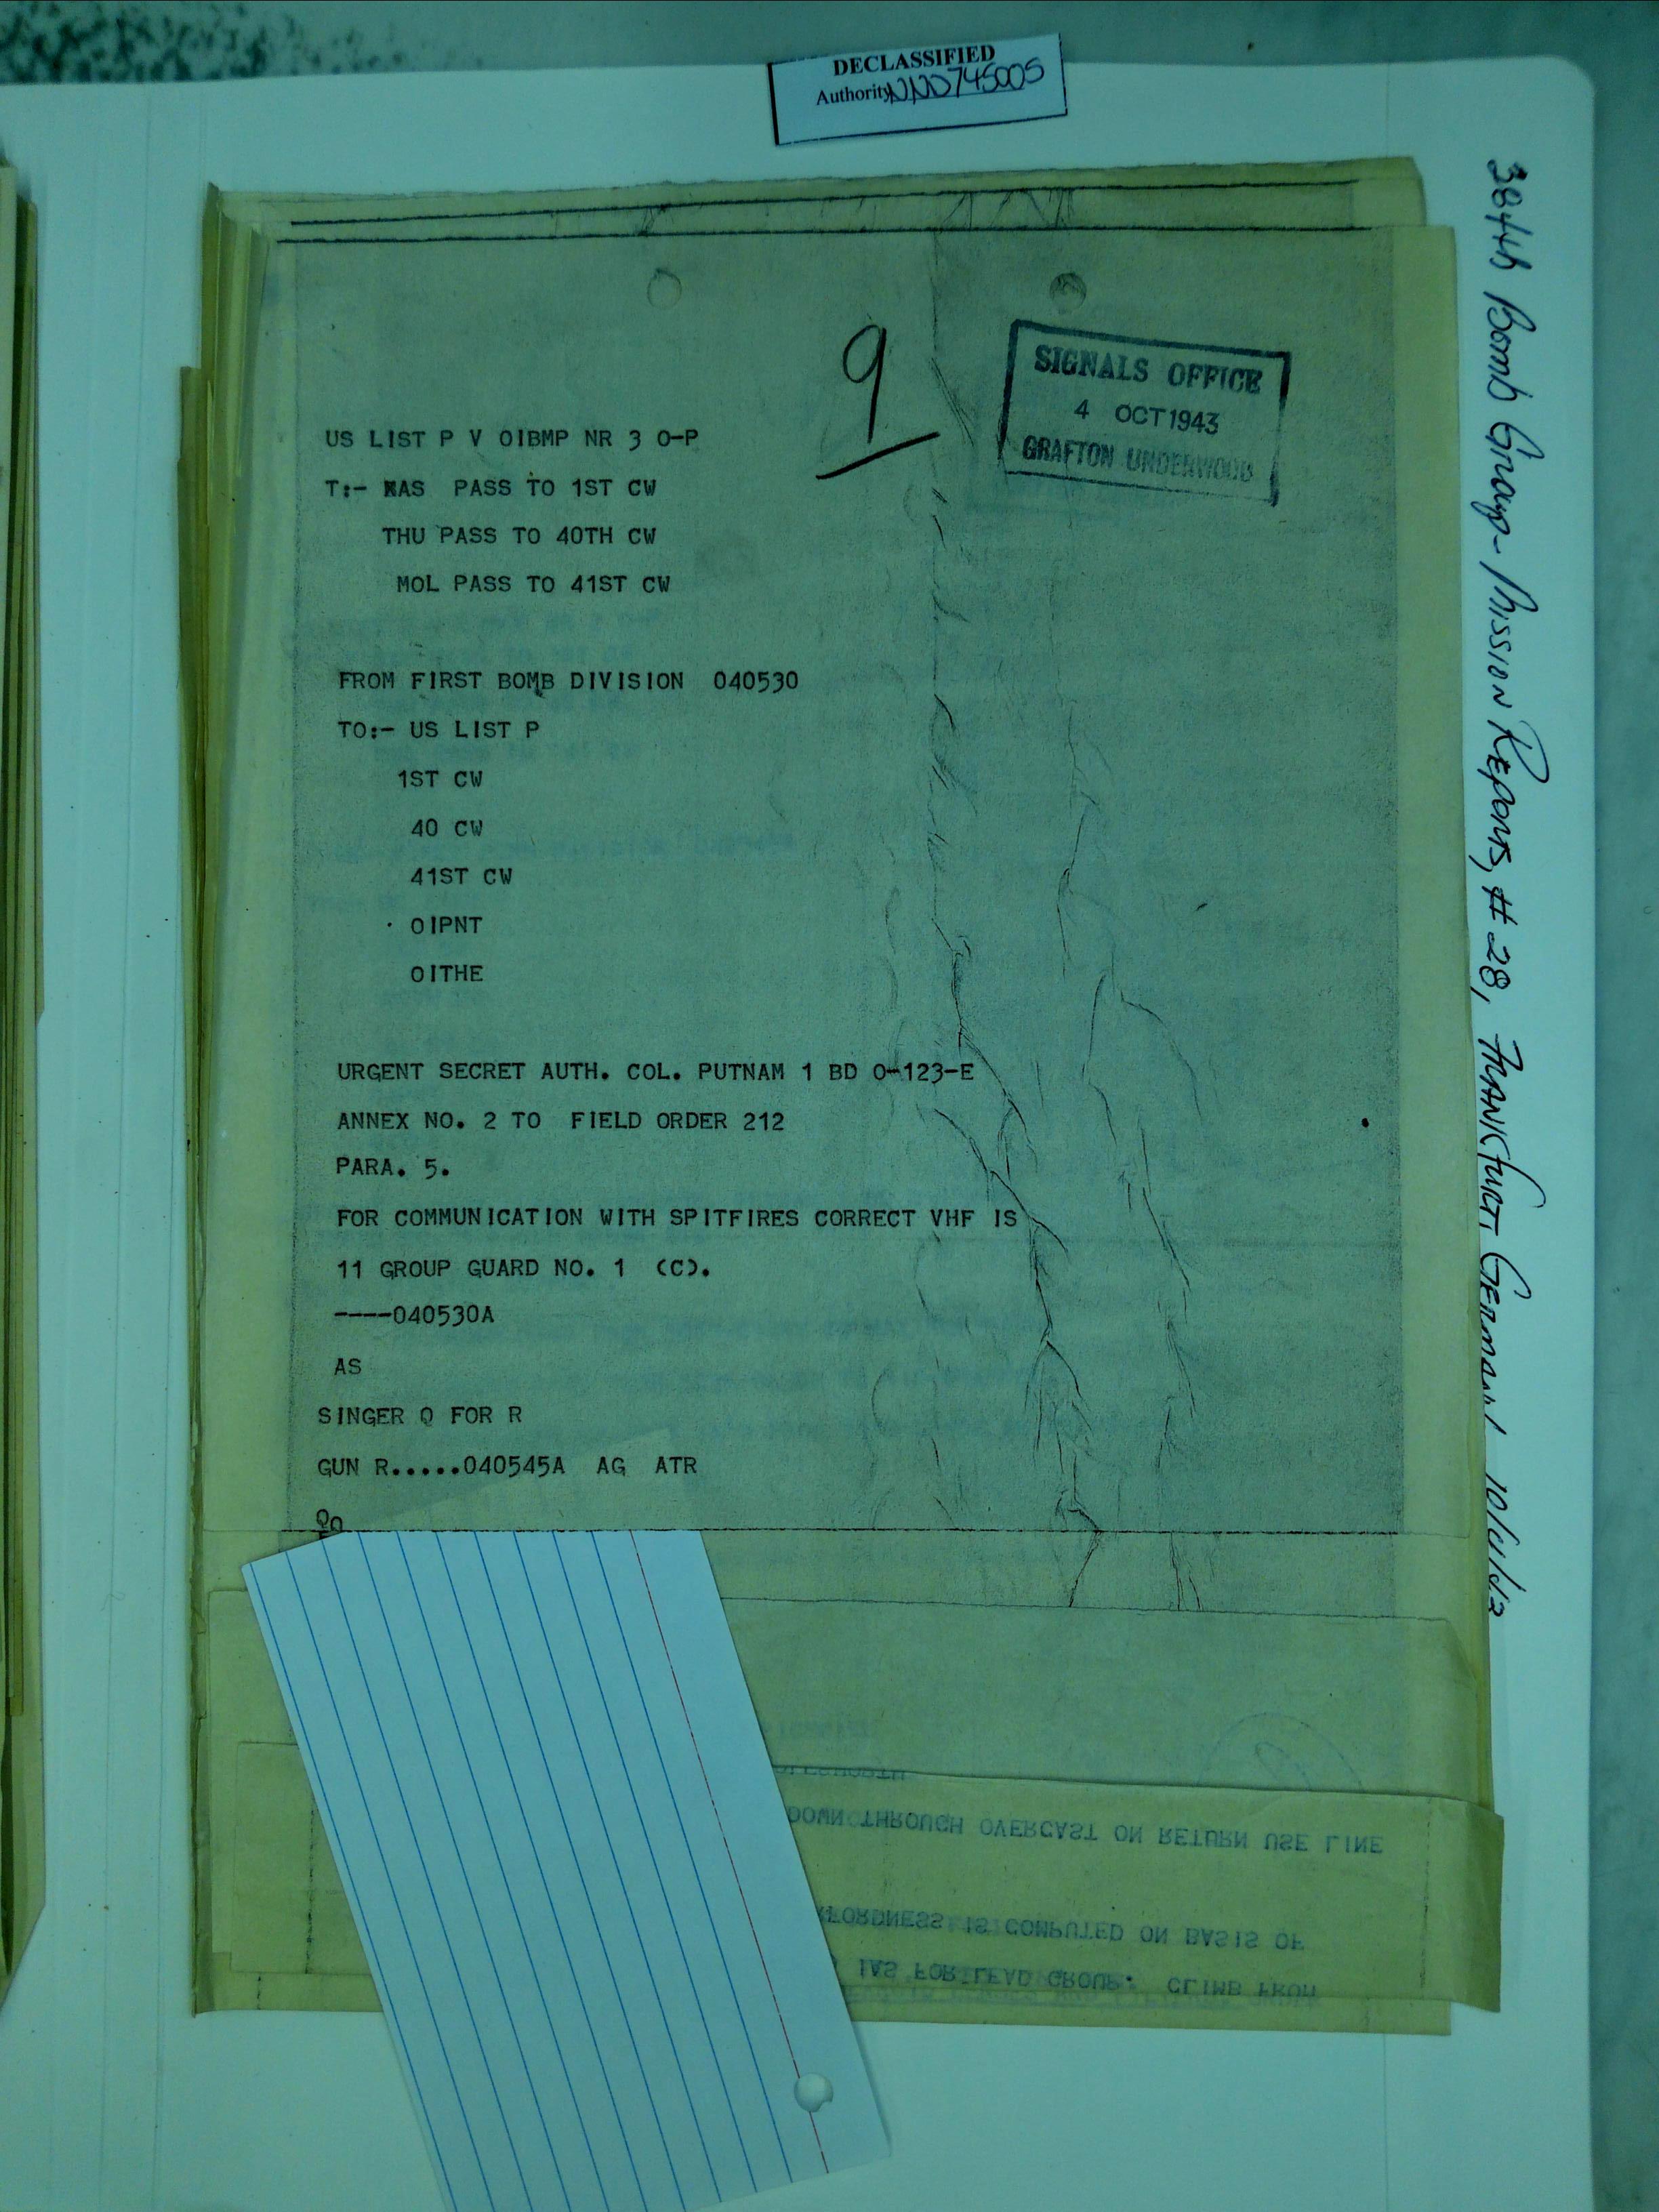 DECLASSIFIED
Authority NND745005
384th Bomb Group - Mission Reports, #28, Frankfurt, Germany 10/4/43
9
SIGNALS OFFICE
4 OCT 1943
GRAFTON UNDERWOOD
US LIST P V OIBMP NR 3 O-P
T:- NAS PASS TO 1ST CW
THU PASS TO 40TH CW
MOL PASS TO 41ST CW
FROM FIRST BOMB DIVISION 040530
TO:- US LIST P
1ST CW
40 CW
41ST CW
OIPNT
OITHE
URGENT SECRET AUTH. COL. PUTNAM 1 BD O-123-E
ANNEX NO. 2 TO FIELD ORDER 212
PARA. 5.
FOR COMMUNICATION WITH SPITFIRES CORRECT VHF IS
11 GROUP GUARD NO. 1 (C).
----040530A
AS
SINGER Q FOR R
GUN R.....040545A AG ATR
DOWN THROUGH OVERCAST ON RETURN USE LINE
RFORDNESS IS COMPUTED ON BASIS OF
IAS FOR LEAD GROUP. CLIMB FROM